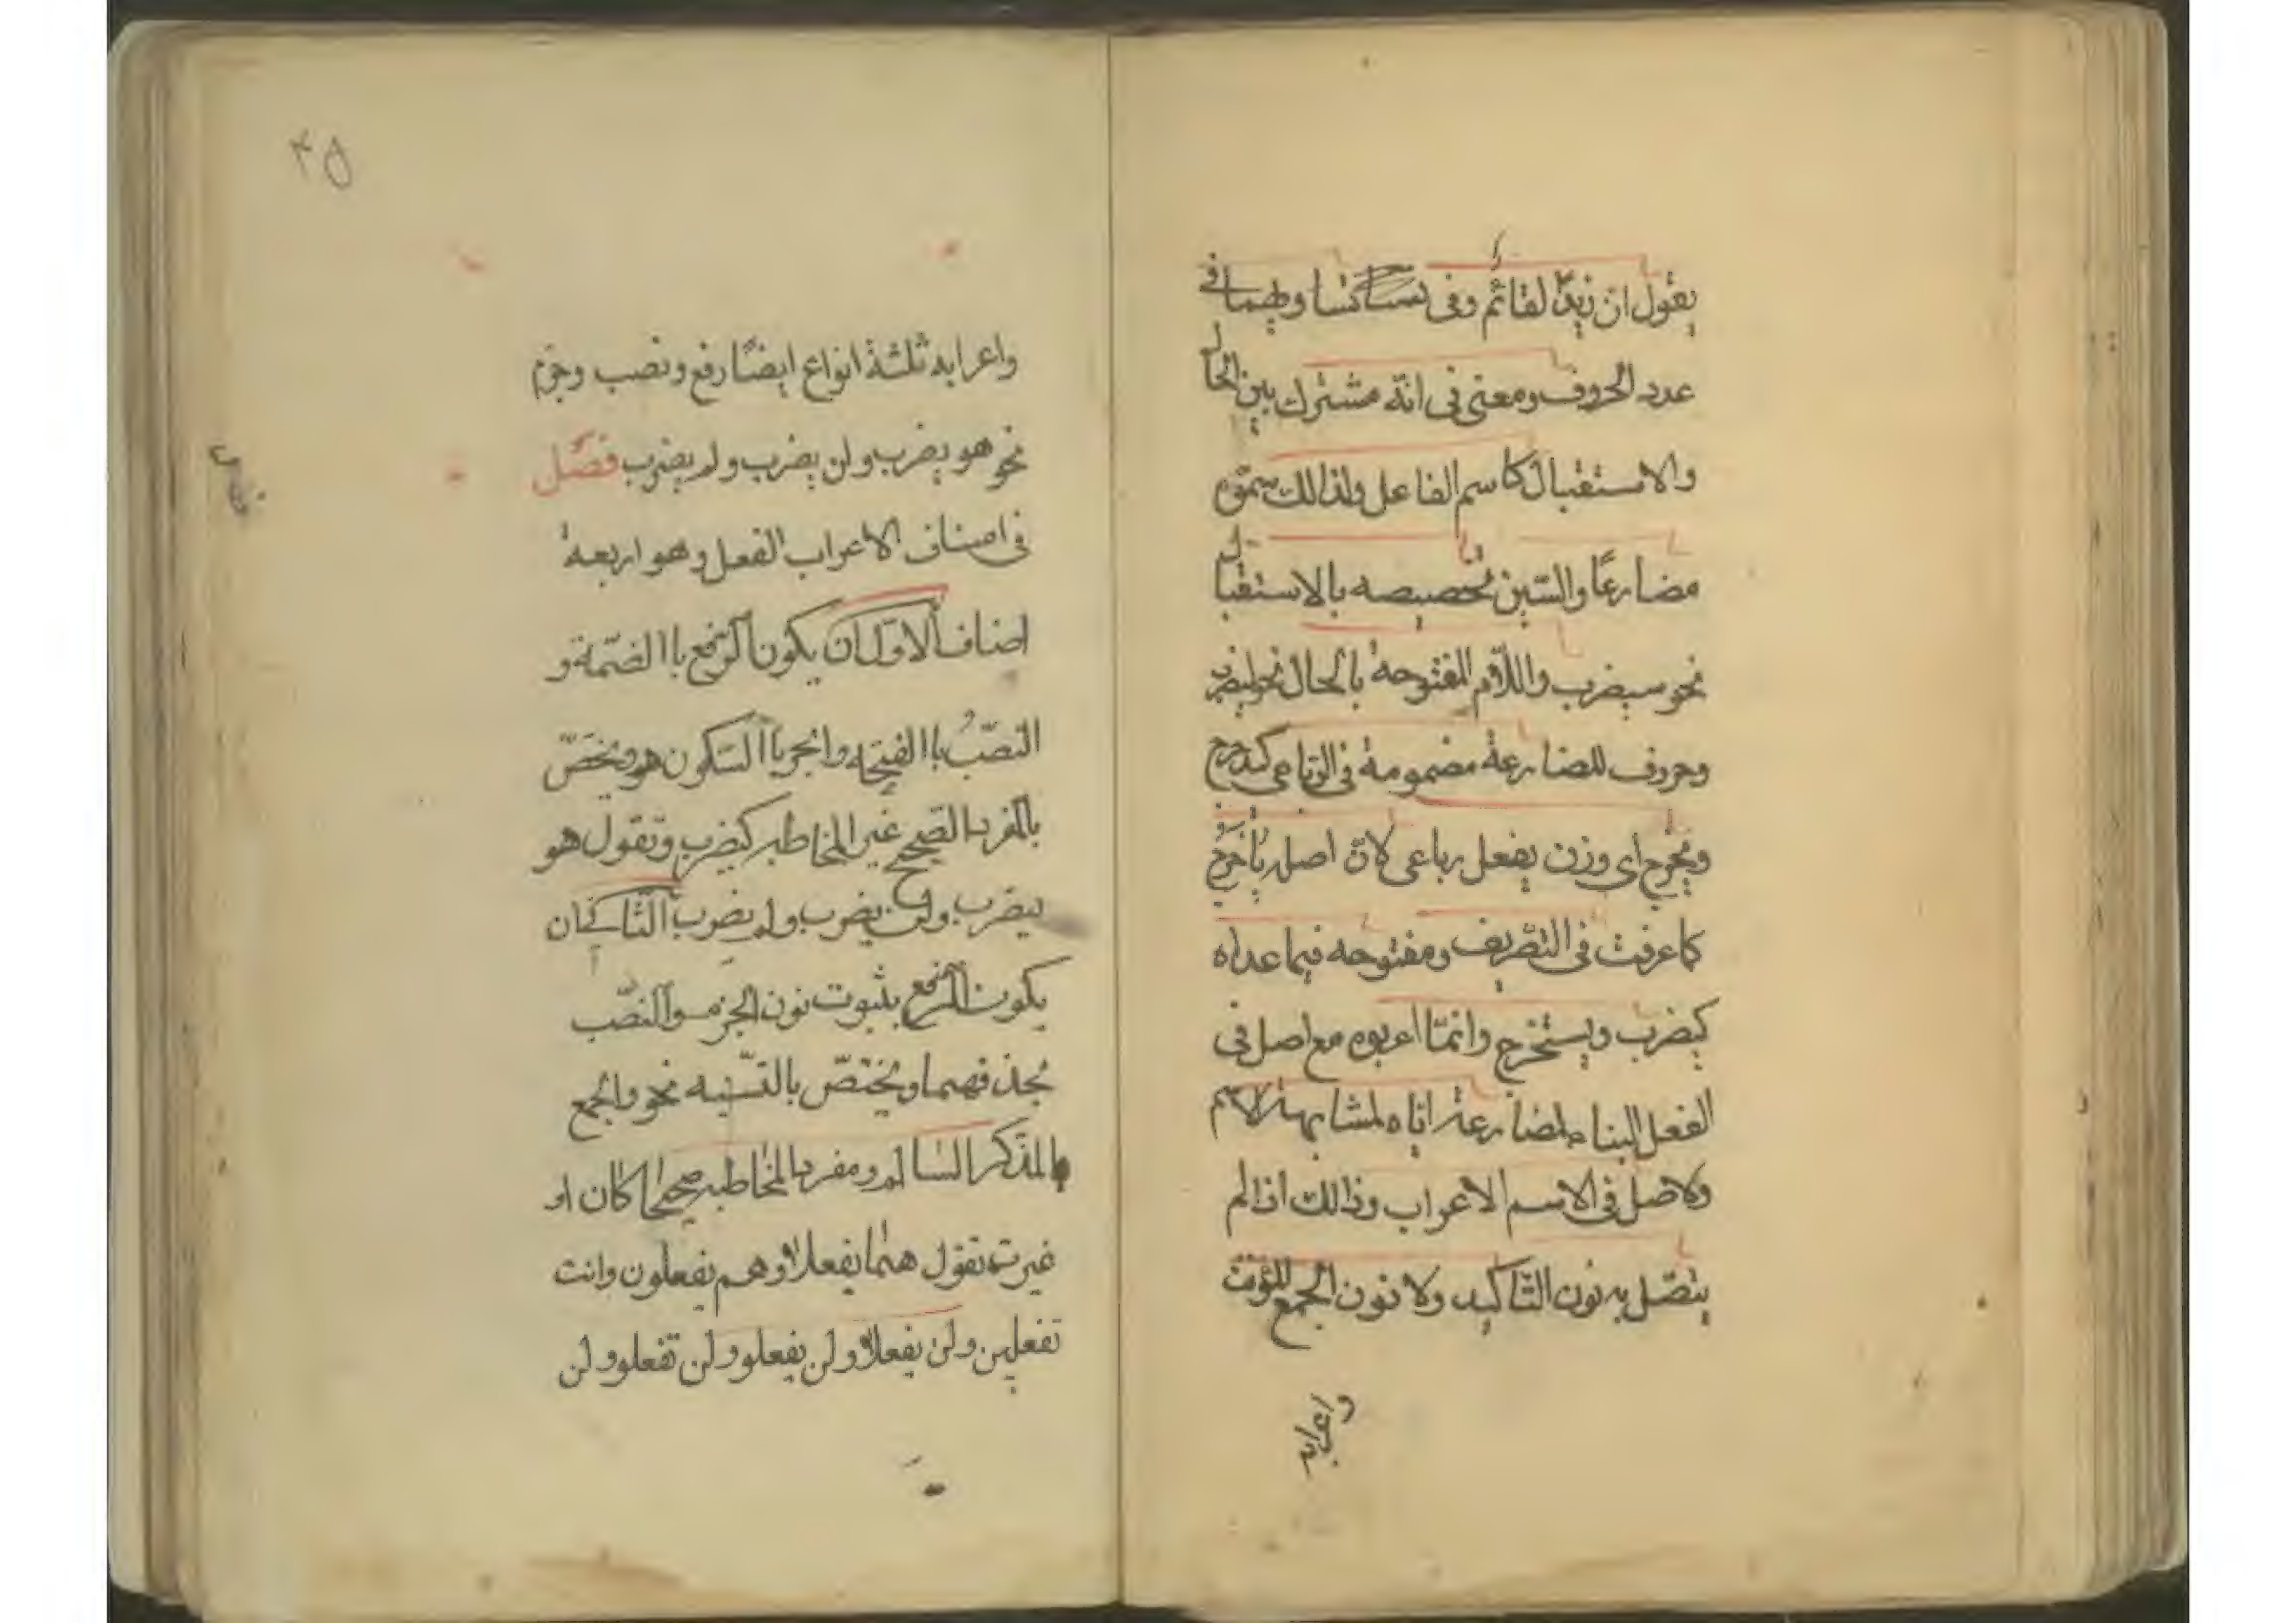 يقول ان زيدا لقائم وفى تساكنسا ويهما فى
عدد الحروف ومعنى فى انّه مشترك بين الحال
والاستقبال كاسم الفاعل ولذالك سمّوه
مضارعًا والسّين تخصيصه بالاستقبال
نحو سيضرب واللّام المفتوحة بالحال نحو ليضرب
وحروف المضارعة مضمومة فى الرّباعى كيدحرج
ويخرج اى وزن يفعل رباعى لانّ اصله يأخرج
كما عرفت فى التصّريف ومفتوحه فيما عداه
كيضرب ويستخرج وانمّا اعربوه مع اصل فى
الفعل البناء لمضارعة اياه لمشابهة الاسم
ولاصل فى الاسم الاعراب وذالك اذالم
يتصّل به نون التّاكيد ولا نون الجمع للمؤنث
واعرابه
٤٥
واعرابه ثلثة انواع ايضًا رفع ونصب وجزم
نحو هو يضرب ولن يضرب ولم يضرب فصل
فى اصناف الاعراب الفعل وهو اربعة
اصناف الاوّل ان يكون الرّفع باالضّمة و
النصّبُ باالفتحه والجر باالسّكون هو ويخصّ
بالمفرد الصّحيح غير المخاطبه كيضرب وتقول هو
يضرب ولن يضرب ولم يضرب الثّانى ان
يكون الرّفع بثبوت نون الجزم والنصّب
بحذفهما ويختصّ بالتّثنيه نحو والجمع
المذكر السّالم ومفرد المخاطبه صحيحًا كان او
غيره تقول هما يفعلان وهم يفعلون وانت
تفعلين ولن يفعلا ولن يفعلو ولن تفعلو ولن